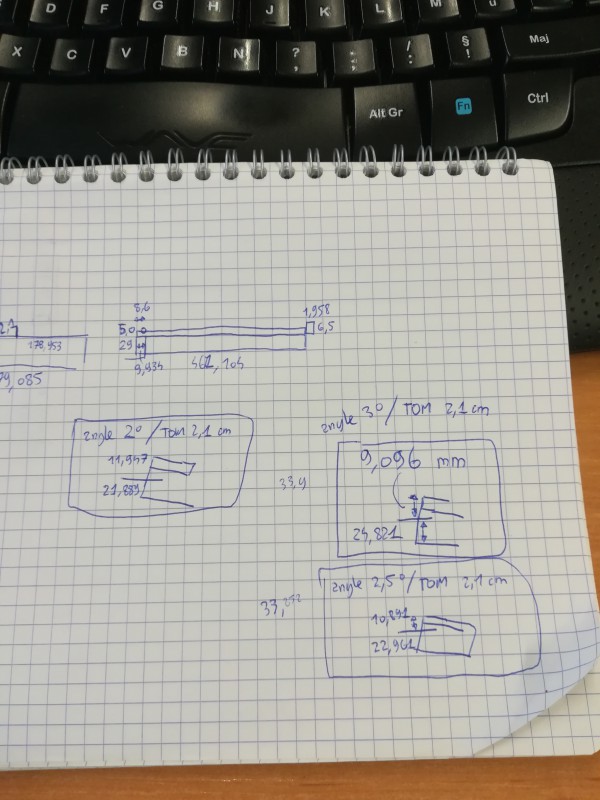 D F G H J K L M ù
X C V B N ? , . ; / : § ! Maj
Alt Gr Fn Ctrl
8,6
1,958
5,0
6,5
178,953
29
9,934
461,104
79,085
angle 3° / TOM 2,1 cm
angle 2° / TOM 2,1 cm
11,947
21,889
33,9
9,096 mm
24,821
angle 2,5° / TOM 2,1 cm
33,252
10,891
22,961